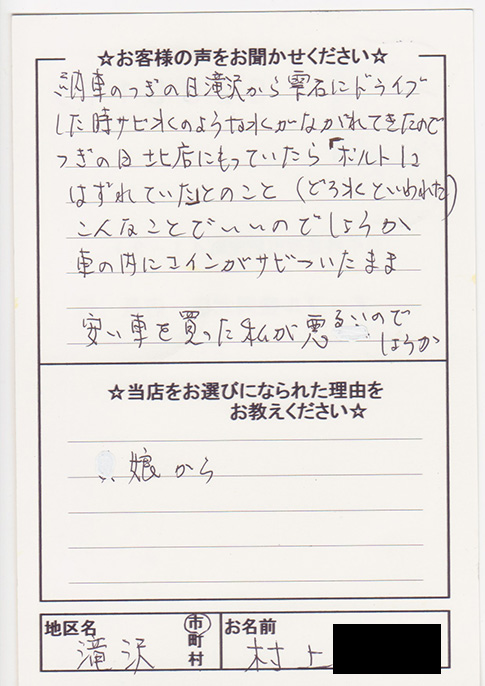 ☆お客様の声をお聞かせください☆
納車のつぎの日滝沢から雫石にドライブ
した時サビ水のような水がながれてきたので
つぎの日北店にもっていたら「ボルトに
はずれていた」とのこと（どろ水といわれた）
こんなことでいいのでしょうか
車の内にコインがサビついたまま
安い車を買った私が悪るいので
しょうか
☆当店をお選びになられた理由を
お教えください☆
娘から
地区名 滝沢 市 町 村 お名前 村上